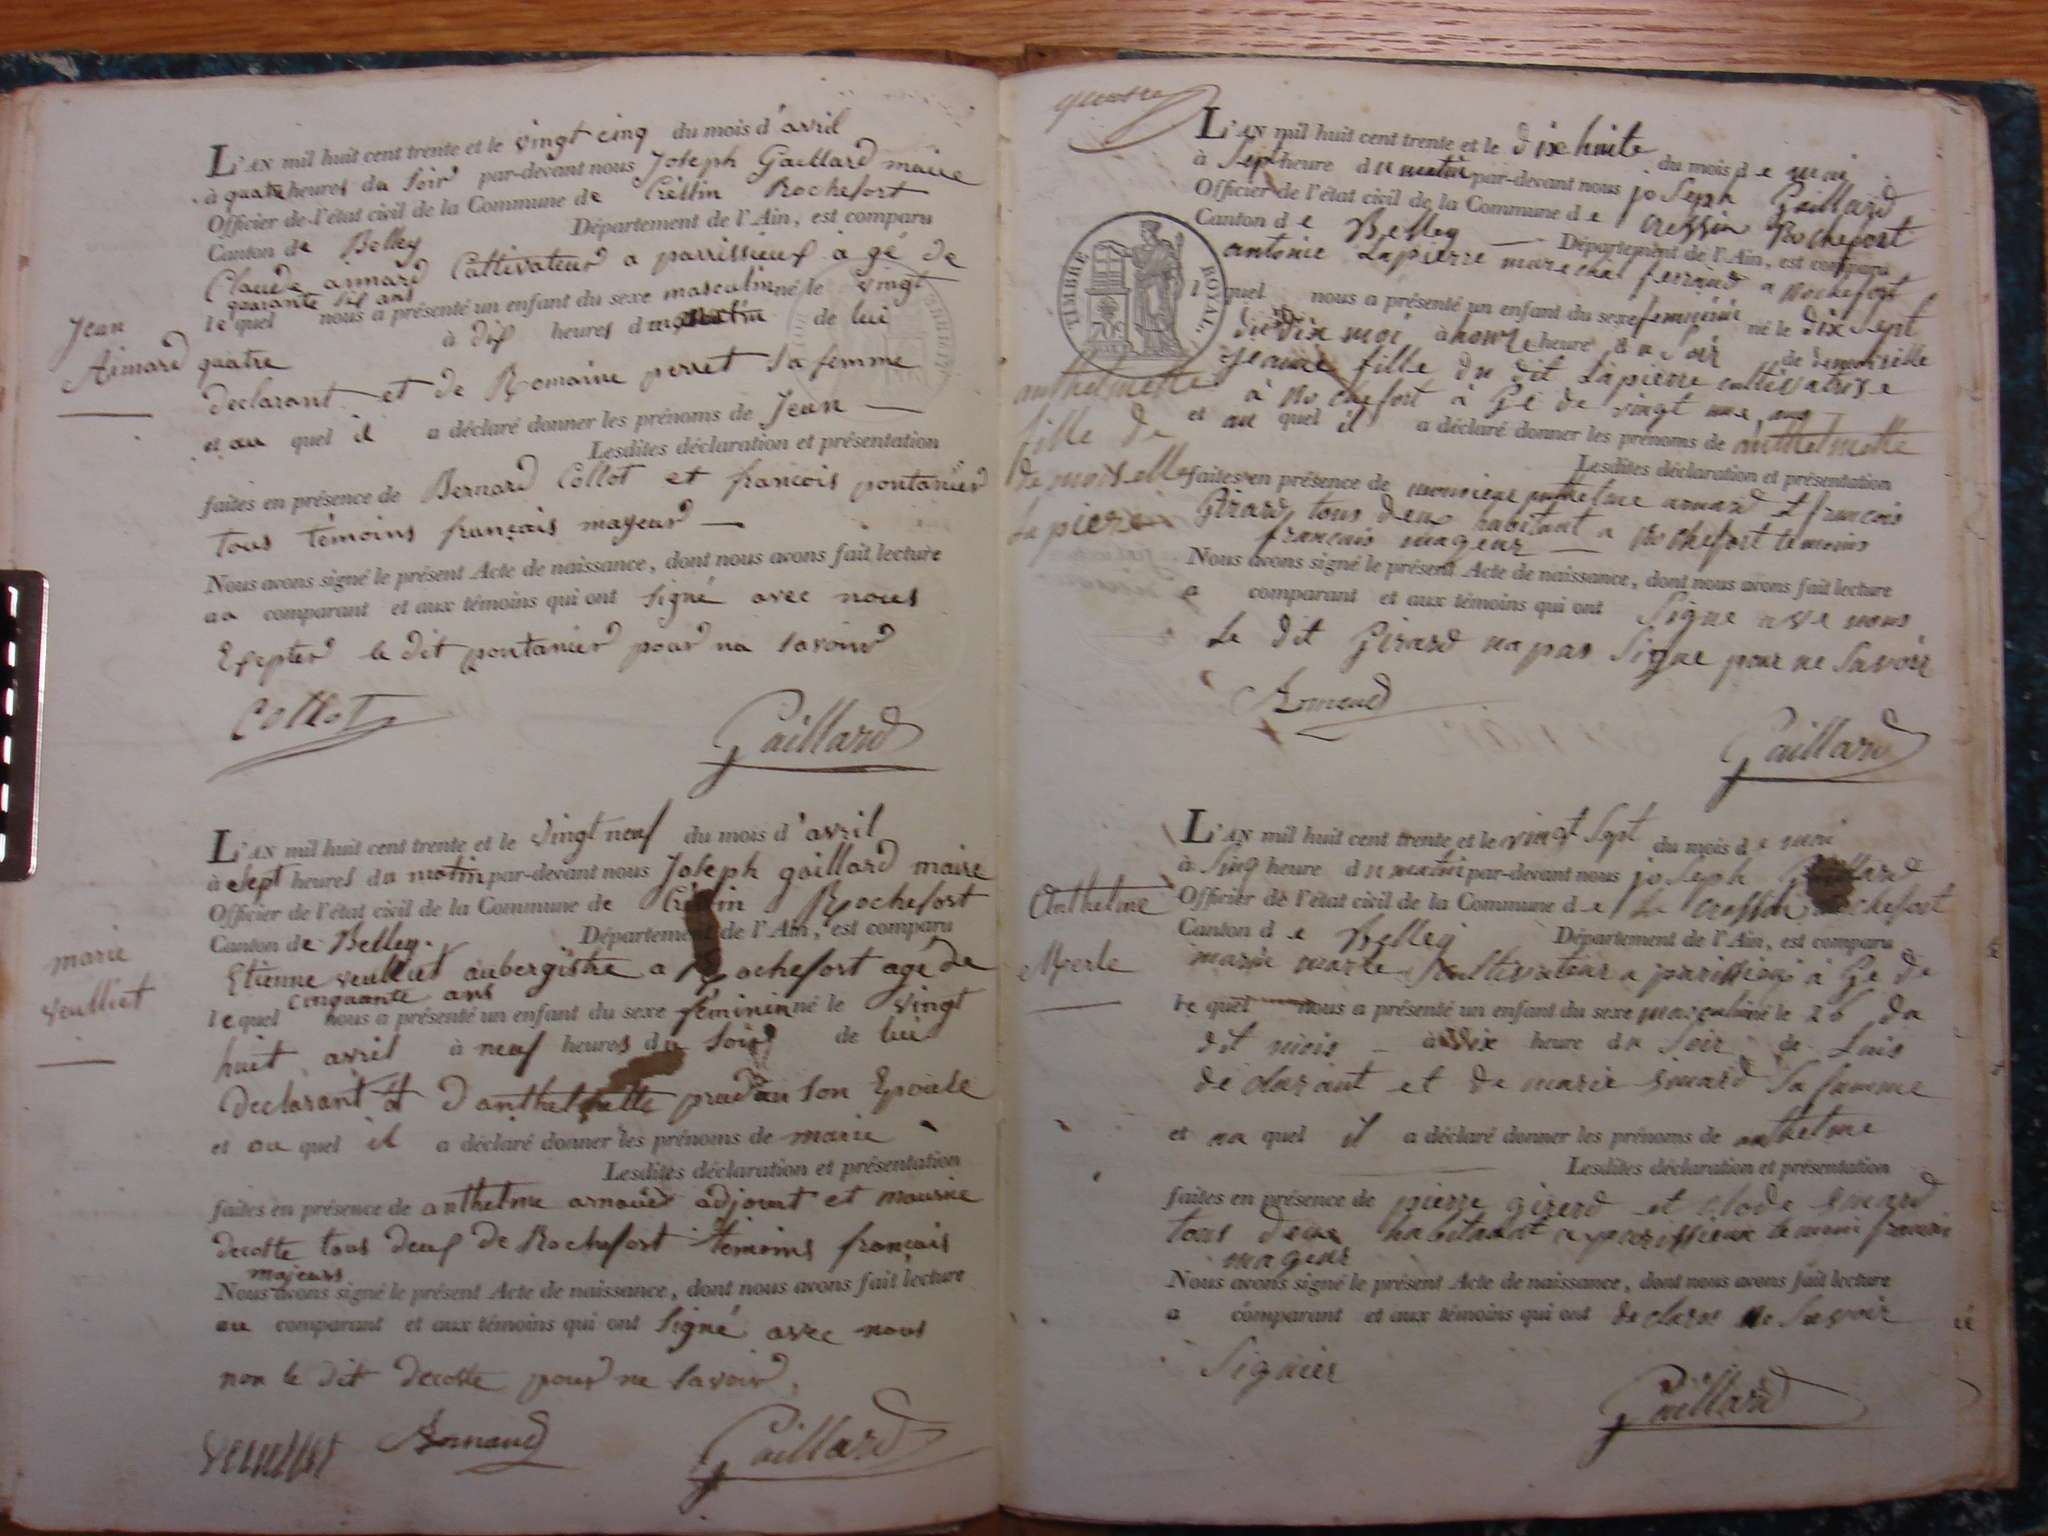 L'AN mil huit cent trente et le vingt cinq du mois d'avril
à quatre heures du soir par-devant nous Joseph Gaillard maire
Officier de l'état civil de la Commune de Créssin Rochefort
Canton de Belley Département de l'Ain, est comparu
Claude aimard Cultivateur a parrissieux âgé de
quarante six ans
lequel nous a présenté un enfant du sexe masculin né le vingt
Jean
Aimard
quatre à dix heures du matin de lui
declarant et de Romaine perret sa femme
et au quel il a déclaré donner les prénoms de Jean
Lesdites déclaration et présentation
faites en présence de Bernard Collot et francois pontanier
tous témoins français mayeurs
Nous avons signé le présent Acte de naissance, dont nous avons fait lecture
au comparant et aux témoins qui ont signé avec nous
Excepter le dit pontanier pour na savoir
Collot
Gaillard
L'AN mil huit cent trente et le vingt neuf du mois d'avril
à sept heures du matin par-devant nous Joseph gaillard maire
Officier de l'état civil de la Commune de Créssin Rochefort
Canton de Belley. Département de l'Ain, est comparu
marie
veulliet
Etienne veulliet aubergistre a Rochefort age de
cinquante ans
lequel nous a présenté un enfant du sexe féminin né le vingt
huit avril à neuf heures du soir de lui
declarant et d'anthelmette prudan son Epouse
et au quel il a déclaré donner les prénoms de marie
Lesdites déclaration et présentation
faites en présence de anthelme arnaud adjoint et maurice
decotte tous deux de Rochefort témoins français
majeurs
Nous avons signé le présent Acte de naissance, dont nous avons fait lecture
au comparant et aux témoins qui ont signé avec nous
non le dit decotte pour ne savoir,
veulliet Arnaud
Gaillard
quatre
L'AN mil huit cent trente et le dix huite du mois de mai
à sept heure du matin par-devant nous joseph Gaillard
Officier de l'état civil de la Commune de cressin Rochefort
Canton de Belley Département de l'Ain, est comparu
antoine Lapierre marechal ferrand a Rochefort
TIMBRE ROYAL
lequel nous a présenté un enfant du sexe feminin né le dix sept
du dix moi à honze heure du soir de demoiselle
jeanne fille du dit Lapierre cultivatrise
à Rochefort à Gé de vingt une ans
et au quel il a déclaré donner les prénoms de anthelmette
anthelmette
fille de
demoiselle
Lapierre
Lesdites déclaration et présentation
faites en présence de monsieur anthelme arnard et francois
Girard tous deux habitant a Rochefort temoins
francais mageur
Nous avons signé le présent Acte de naissance, dont nous avons fait lecture
a comparant et aux témoins qui ont signe avve nous
Le dit Girard na pas signe pour ne savoir
Arnaud
Gaillard
L'AN mil huit cent trente et le vingt sept du mois de mai
à sinq heure du matin par-devant nous joseph Gaillard
Officier de l'état civil de la Commune de cressin Rochefort
Canton de Belley Département de l'Ain, est comparu
Anthelme
Merle
marin marle cultivateur a parissieux à Gé de
le quel nous a présenté un enfant du sexe masculin né le 26 du
dit mois à dix heure du soir de Luis
déclarant et de marie emard sa famme
et au quel il a déclaré donner les prénoms de anthelme
Lesdites déclaration et présentation
faites en présence de pierre girerd et clode emard
tous deux habitant a parissieux
mageur
Nous avons signé le présent Acte de naissance, dont nous avons fait lecture
a comparant et aux témoins qui ont declare ne savoir
signier
Gaillard